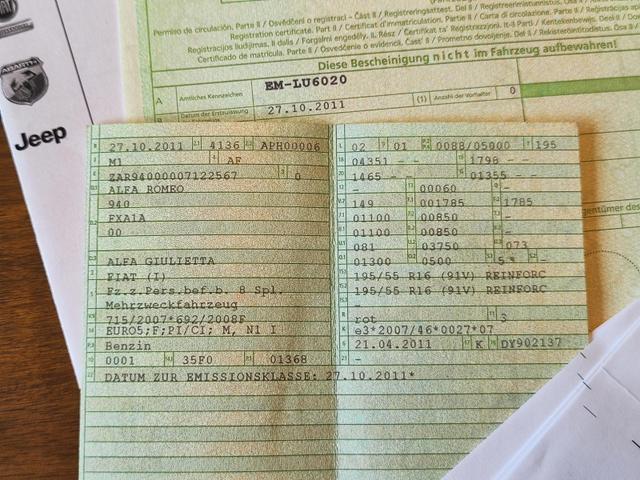 Permiso de circulación. Parte II / Osvědčení o registraci – Část II / Registreringsattest. Del II /
Registration certificate. Part II / Certificat d'immatriculation. Partie II / Carta di circolazione. Parte II /
Registracijos liudijimas. II dalis / Forgalmi engedély. II. Rész / Ċertifikat ta' Reġistrazzjoni. It-II Parti / Kentekenbewijs. Deel II /
Certificado de matrícula. Parte II / Osvedčenie o evidencii. Časť II / Prometno dovoljenje. Del II / Rekisteröintitodistus. Osa II /
Diese Bescheinigung nicht im Fahrzeug aufbewahren!
A Amtliches Kennzeichen EM-LU6020
B Datum der Erstzulassung 27.10.2011 (1) Anzahl der Vorhalter 0
ABARTH
Jeep
27.10.2011 4136 APH00006
M1 AF
ZAR94000007122567 0
ALFA ROMEO
940
FXA1A
00
ALFA GIULIETTA
FIAT (I)
Fz.z.Pers.bef.b. 8 Spl.
Mehrzweckfahrzeug
715/2007*692/2008F
EURO5;F;PI/CI; M, N1 I
Benzin
0001 35F0 01368
DATUM ZUR EMISSIONSKLASSE: 27.10.2011*
02 01 0088/05000 195
04351 – – 1798 – –
1465 – – 01355 – –
– 00060 –
149 001785 1785
01100 00850 –
01100 00850 –
081 03750 073
01300 0500 5 –
195/55 R16 (91V) REINFORC
195/55 R16 (91V) REINFORC
–
rot 3
e3*2007/46*0027*07
21.04.2011 K DY902137
–